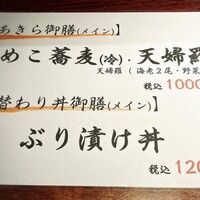 あきら御膳(メイン)】
めこ蕎麦(冷)・天婦羅
天婦羅(海老2尾・野菜
税込1000
替わり丼御膳(メイン)】
ぶり漬け丼
税込120